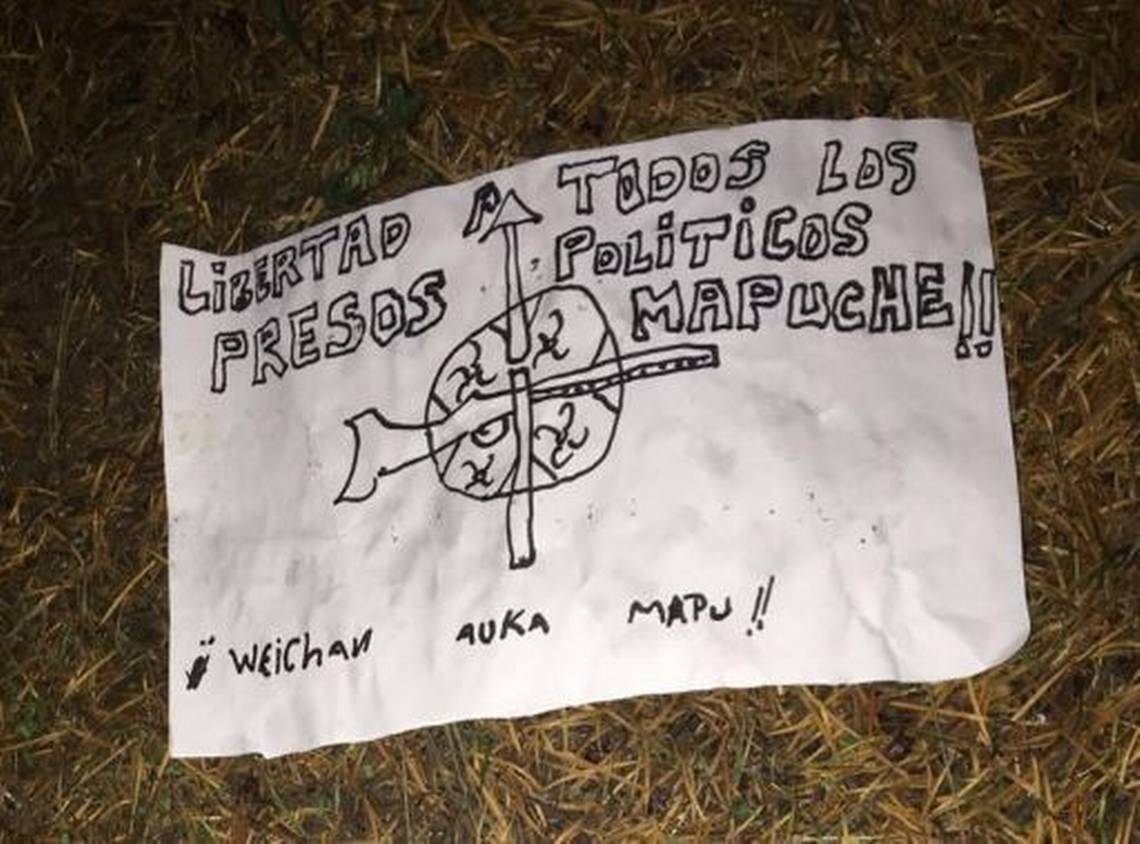 LiBERTAD A TODOS LOS
PRESOS POLíTiCOS
MAPUCHE!!
¡¡ WEiChaN AUKA MAPU!!